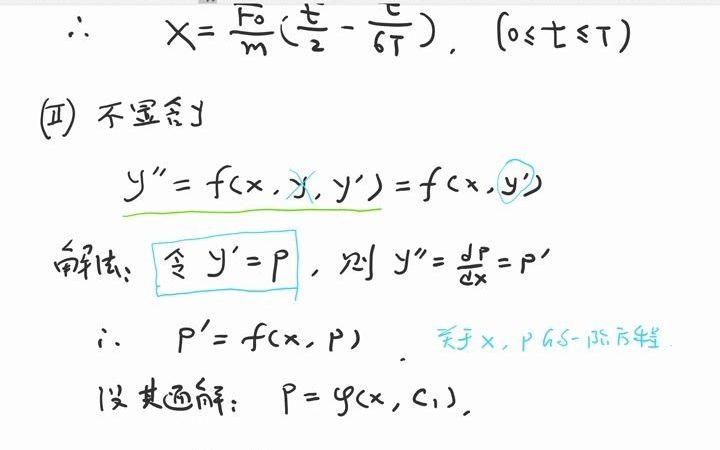 ∴ X = F₀/m (t/2 - t/6T). (0 ≤ t ≤ T)
(Ⅱ) 不显含y
y″ = f(x, y, y′) = f(x, y′)
解法: 令 y′ = P, 则 y″ = dP/dx = P′
∴ P′ = f(x, P). 关于x, P的一阶方程.
设其通解: P = φ(x, C₁),